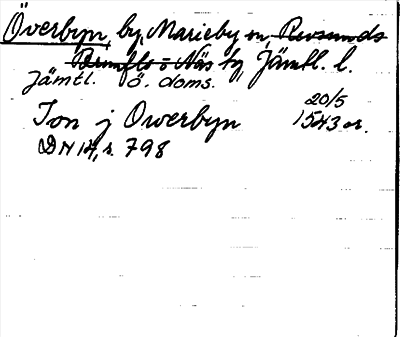 Överbyn, by, Marieby sn, Revsunds
Brunflo o Näs tg, Jämtl. l.
Jämtl. ö. doms.
Ion j Owerbyn 20/5 1543 or.
DN 14, s. 798